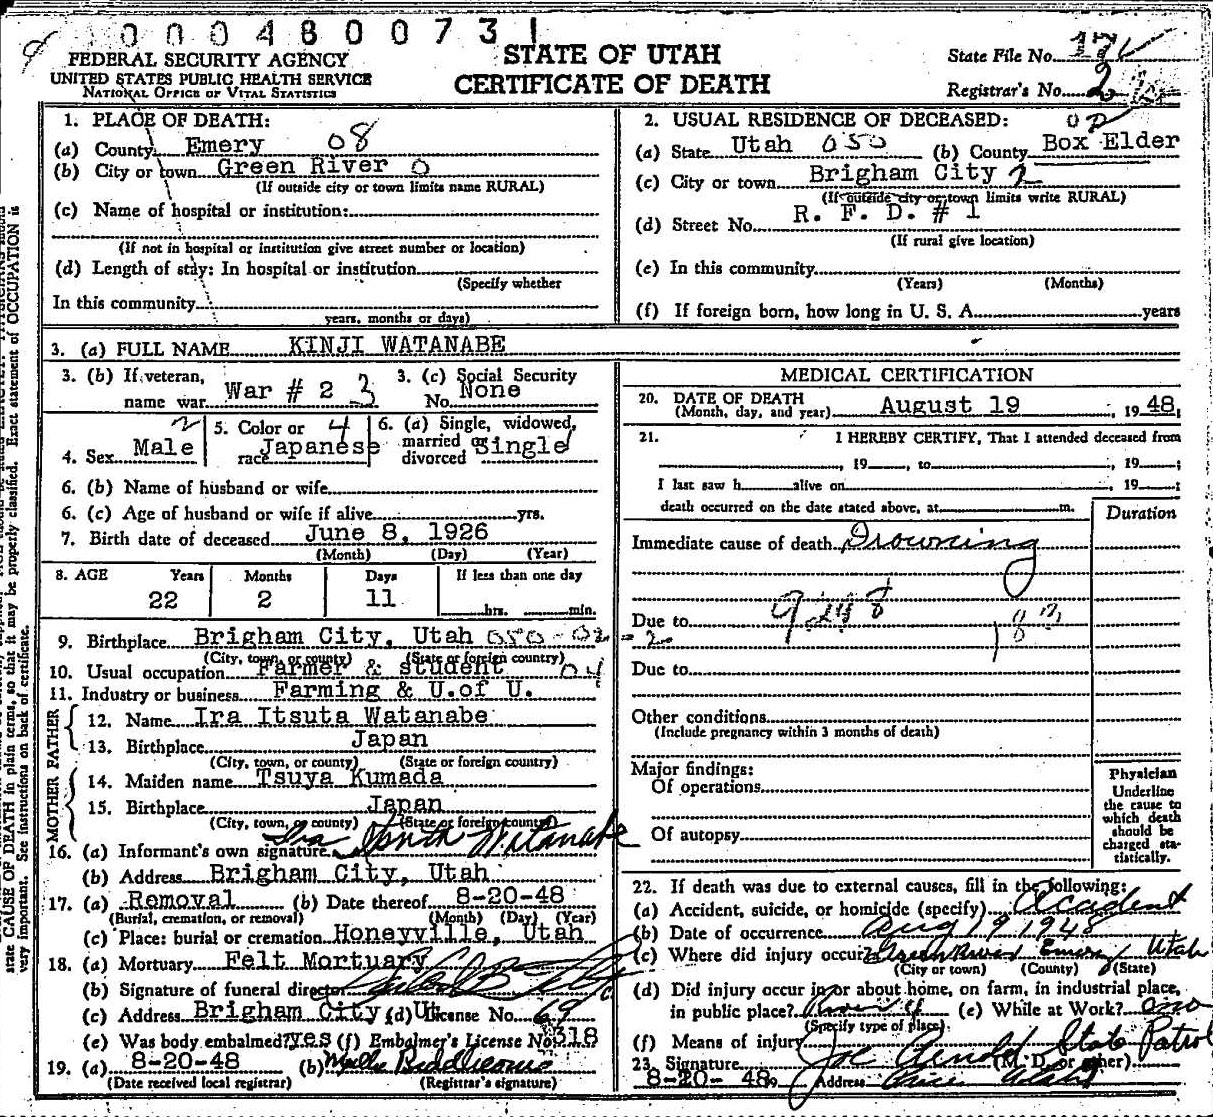 000480073
FEDERAL SECURITY AGENCY
UNITED STATES PUBLIC HEALTH SERVICE
NATIONAL OFFICE OF VITAL STATISTICS
STATE OF UTAH
CERTIFICATE OF DEATH
State File No.
Registrar's No. 2
1. PLACE OF DEATH:
(a) County Emery 08
(b) City or town Green River 0
(If outside city or town limits name RURAL)
(c) Name of hospital or institution:
(If not in hospital or institution give street number or location)
(d) Length of stay: In hospital or institution
(Specify whether
In this community
years, months or days)
2. USUAL RESIDENCE OF DECEASED:
(a) State Utah 050 (b) County Box Elder
(c) City or town Brigham City 2
(If outside city or town limits write RURAL)
(d) Street No. R. F. D. # 1
(If rural give location)
(e) In this community
(Years) (Months)
(f) If foreign born, how long in U. S. A. years
3. (a) FULL NAME KINJI WATANABE
3. (b) If veteran, name war War # 2 3
3. (c) Social Security No. None
4. Sex Male 2
5. Color or race Japanese 4
6. (a) Single, widowed, married or divorced Single
6. (b) Name of husband or wife
6. (c) Age of husband or wife if alive yrs.
7. Birth date of deceased June 8, 1926
(Month) (Day) (Year)
8. AGE Years Months Days If less than one day
22 2 11 hrs. min.
9. Birthplace Brigham City, Utah 050-02-2
(City, town, or county) (State or foreign country)
10. Usual occupation Farmer & student 04
11. Industry or business Farming & U. of U.
FATHER
12. Name Ira Itsuta Watanabe
13. Birthplace Japan
(City, town, or county) (State or foreign country)
MOTHER
14. Maiden name Tsuya Kumada
15. Birthplace Japan
(City, town, or county) (State or foreign country)
16. (a) Informant's own signature Ira Watanabe
(b) Address Brigham City, Utah
17. (a) Removal (b) Date thereof 8-20-48
(Burial, cremation, or removal) (Month) (Day) (Year)
(c) Place: burial or cremation Honeyville, Utah
18. (a) Mortuary Felt Mortuary
(b) Signature of funeral director
(c) Address Brigham City, Ut (d) License No. 69
(e) Was body embalmed? yes (f) Embalmer's License No. 318
19. (a) 8-20-48 (b)
(Date received local registrar) (Registrar's signature)
MEDICAL CERTIFICATION
20. DATE OF DEATH
(Month, day, and year) August 19, 1948
21. I HEREBY CERTIFY, That I attended deceased from
, 19 , to , 19 ;
I last saw h alive on , 19 ;
death occurred on the date stated above, at m.
Duration
Immediate cause of death Drowning
Due to 183
Due to
Other conditions
(Include pregnancy within 3 months of death)
Major findings:
Of operations
Of autopsy
Physician
Underline
the cause to
which death
should be
charged sta-
tistically.
22. If death was due to external causes, fill in the following:
(a) Accident, suicide, or homicide (specify) Accident
(b) Date of occurrence Aug 19 1948
(c) Where did injury occur? Green River Emery Utah
(City or town) (County) (State)
(d) Did injury occur in or about home, on farm, in industrial place,
in public place? (e) While at Work? no
(Specify type of place)
(f) Means of injury
23. Signature Joe Arnold State Patrol (M. D. or other)
8-20-48 Address Price Utah
state CAUSE OF DEATH in plain terms, so that it may be properly classified. Exact statement of OCCUPATION is
very important. See instructions on back of certificate.